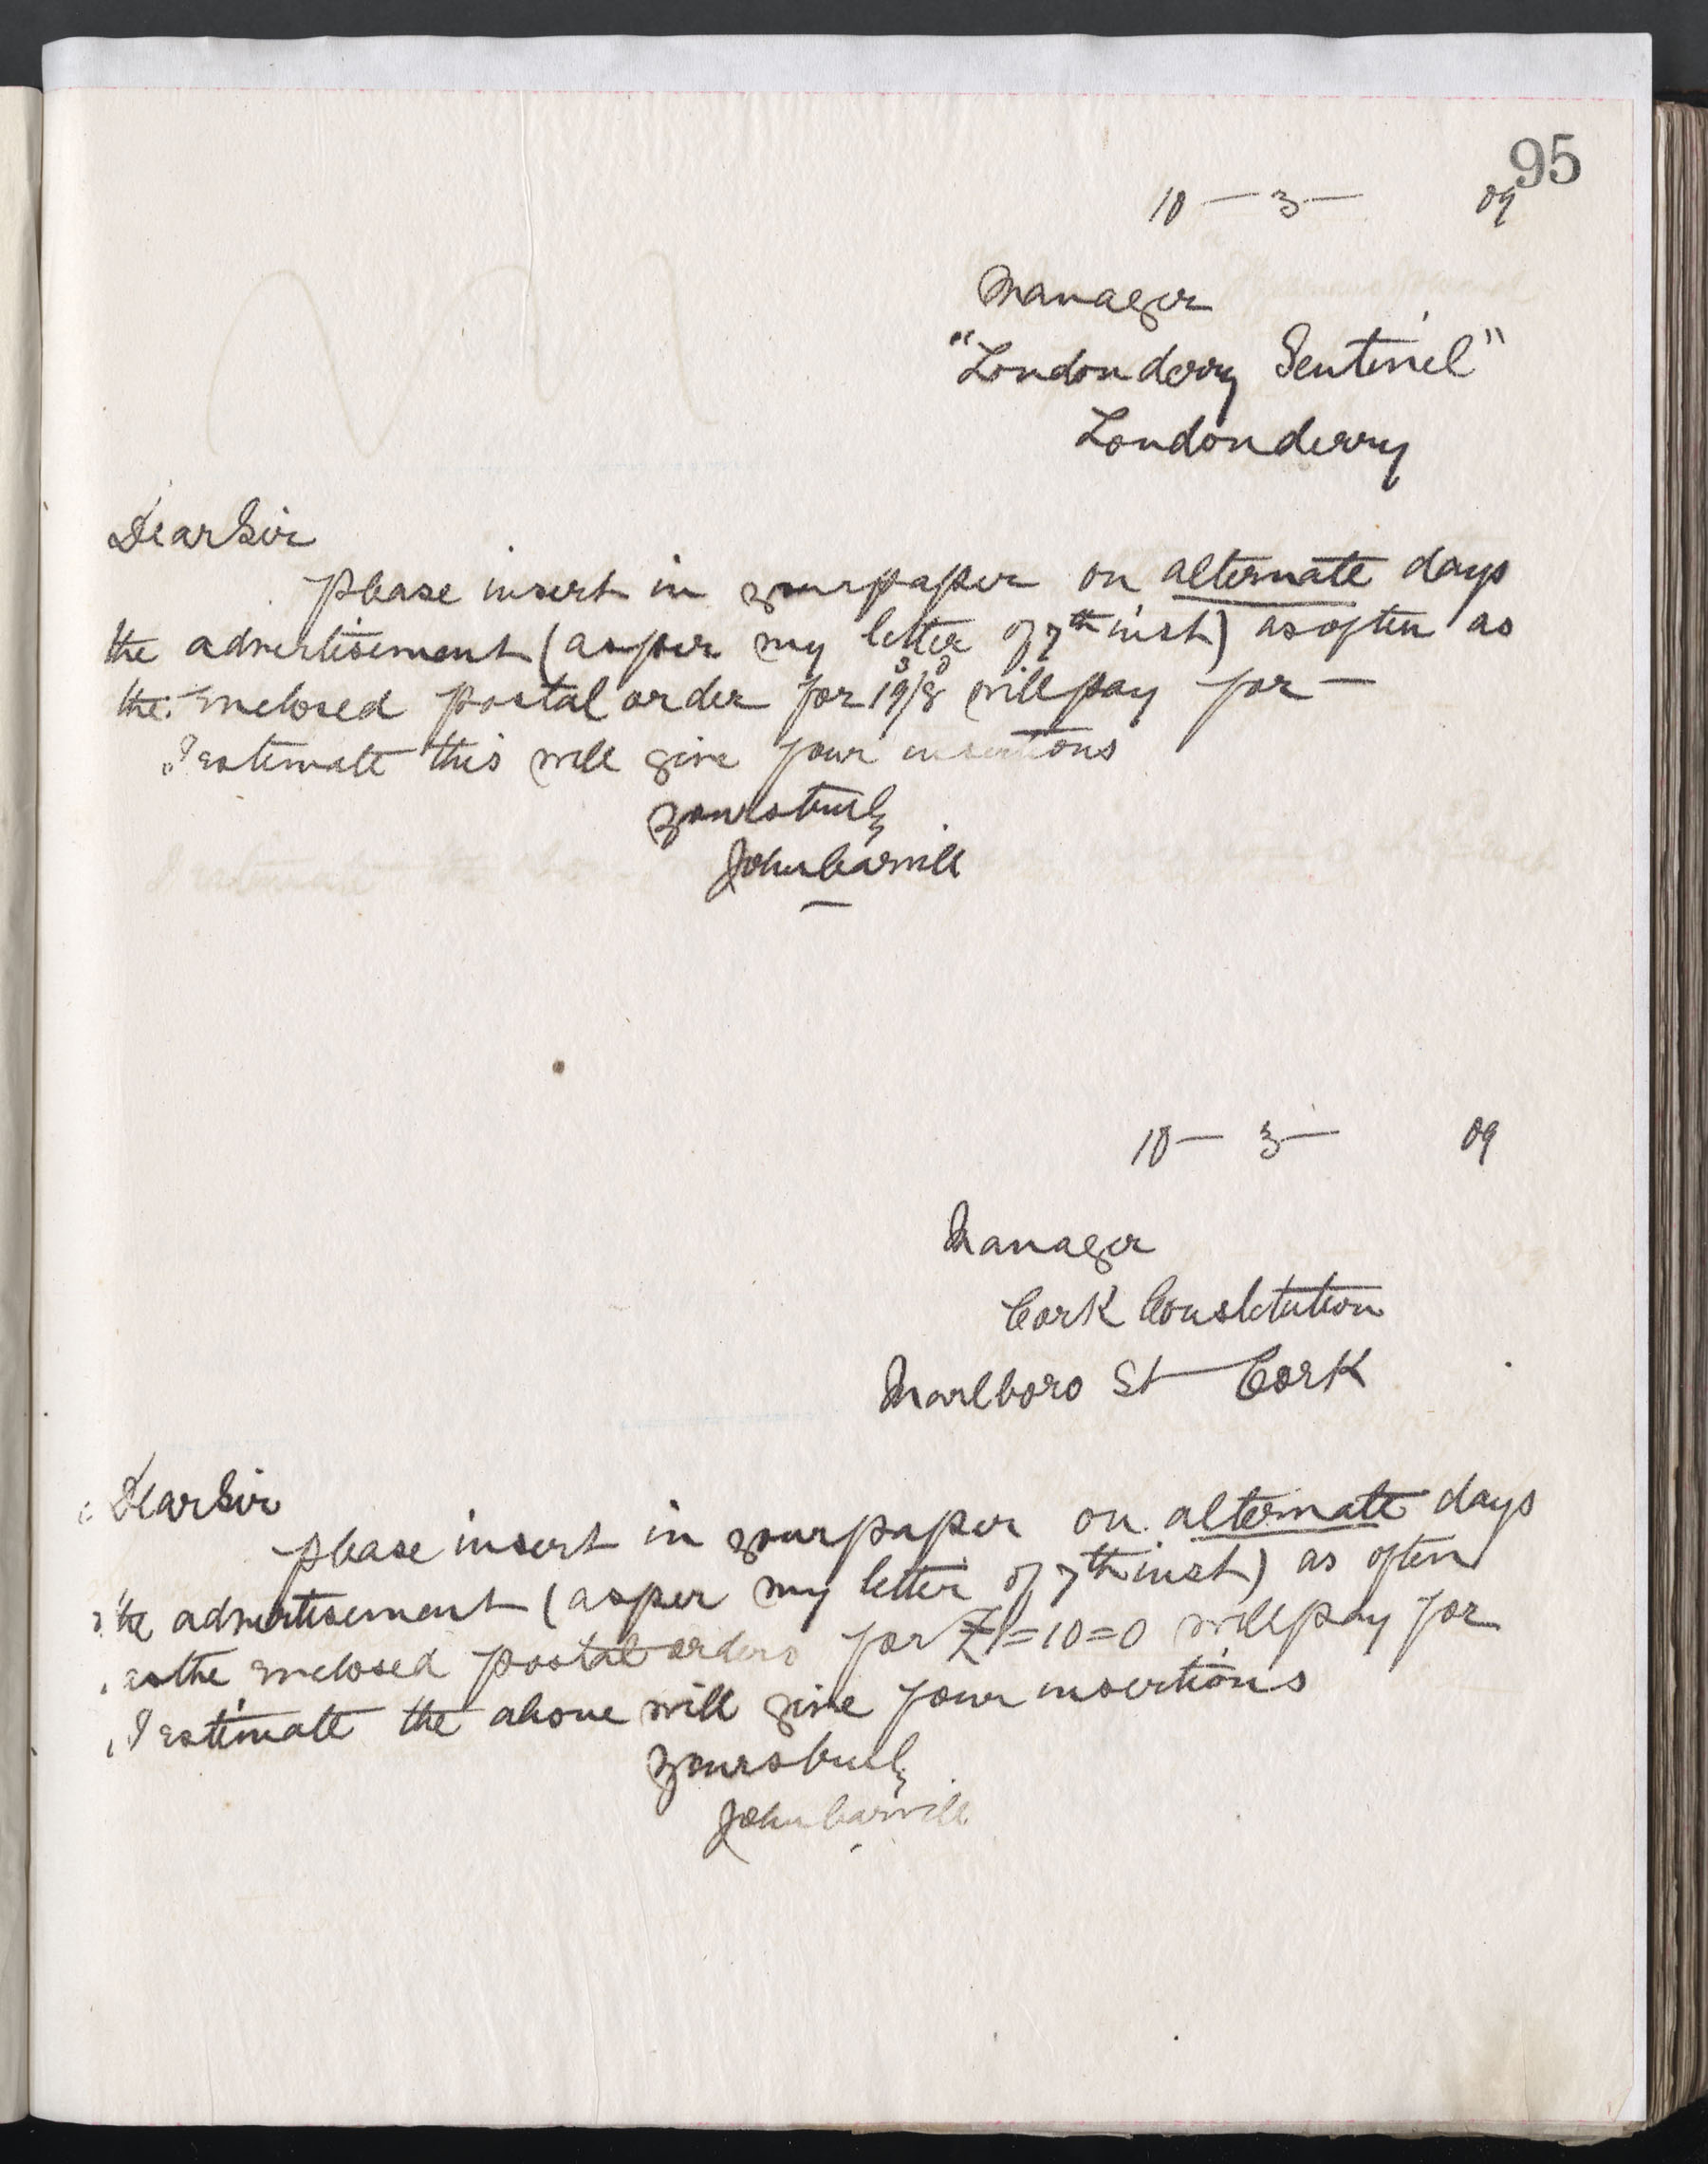 95
10 — 3 — 09
Manager
"Londonderry Sentinel"
Londonderry
Dear Sir
please insert in your paper on alternate days
the advertisement (as per my letter of 7th inst) as often as
the enclosed postal order for 19/8 will pay for —
I estimate this will give four insertions
Yours truly
John Carvill
10 — 3 — 09
Manager
Cork Constitution
Marlboro St — Cork
Dear Sir
please insert in your paper on alternate days
the advertisement (as per my letter of 7th inst) as often
as the enclosed postal orders for £1=10=0 will pay for
I estimate the above will give four insertions
Yours truly
John Carvill